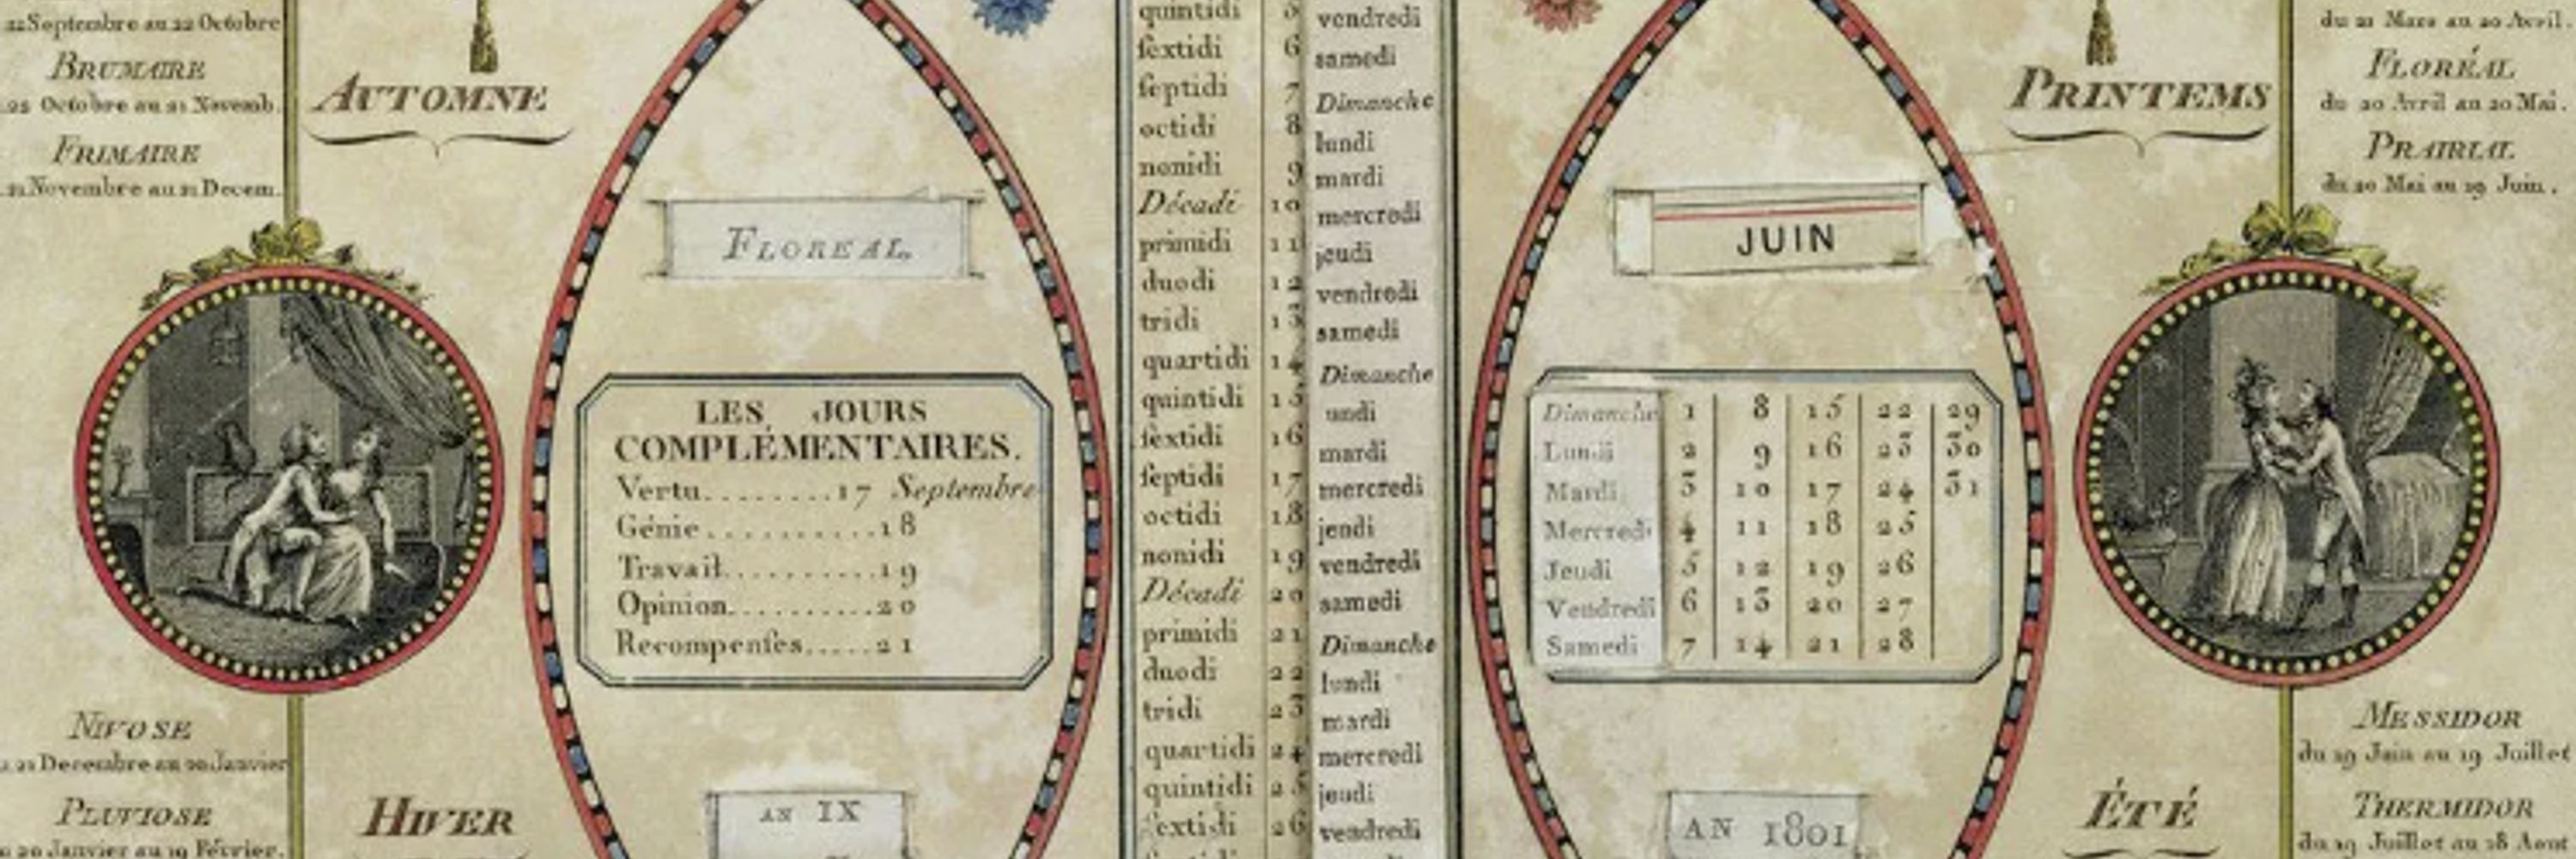 22 Septembre au 22 Octobre
BRUMAIRE
22 Octobre au 21 Novemb.
FRIMAIRE
21 Novembre au 21 Decem.
AUTOMNE
NIVOSE
21 Decembre au 20 Janvier
PLUVIOSE
20 Janvier au 19 Février.
HIVER
FLOREAL
LES JOURS
COMPLÉMENTAIRES.
Vertu........17 Septembre
Génie..........18
Travail..........19
Opinion..........20
Recompenſes.....21
AN IX
quintidi 5 vendredi
ſextidi 6 samedi
ſeptidi 7 Dimanche
octidi 8 lundi
nonidi 9 mardi
Décadi 10 mercredi
primidi 11 jeudi
duodi 12 vendredi
tridi 13 samedi
quartidi 14 Dimanche
quintidi 15 undi
ſextidi 16 mardi
ſeptidi 17 mercredi
octidi 18 jeudi
nonidi 19 vendredi
Décadi 20 samedi
primidi 21 Dimanche
duodi 22 lundi
tridi 23 mardi
quartidi 24 mercredi
quintidi 25 jeudi
ſextidi 26 vendredi
JUIN
Dimanche 1 8 15 22 29
Lundi 2 9 16 23 30
Mardi 3 10 17 24 31
Mercredi 4 11 18 25
Jeudi 5 12 19 26
Vendredi 6 13 20 27
Samedi 7 14 21 28
AN 1801
PRINTEMS
du 21 Mars au 20 Avril.
FLORÉAL
du 20 Avril au 20 Mai.
PRAIRIAL
du 20 Mai au 19 Juin.
MESSIDOR
du 19 Juin au 19 Juillet
THERMIDOR
du 19 Juillet au 18 Aout
ÉTÉ